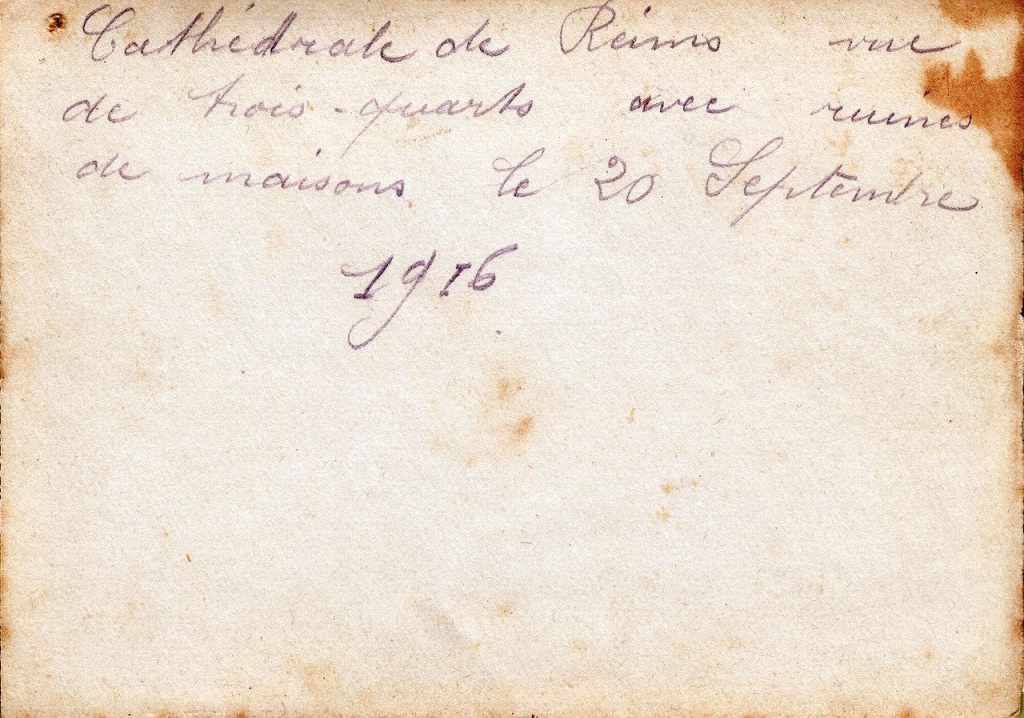 Cathédrale de Reims vue
de trois-quarts avec ruines
de maisons le 20 Septembre
1916